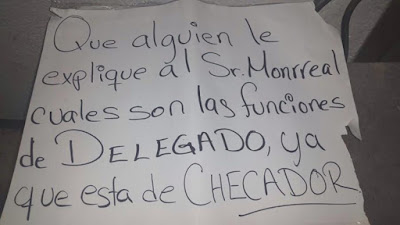 Que alguien le
explique al Sr. Monrreal
cuales son las funciones
de DELEGADO, ya
que esta de CHECADOR